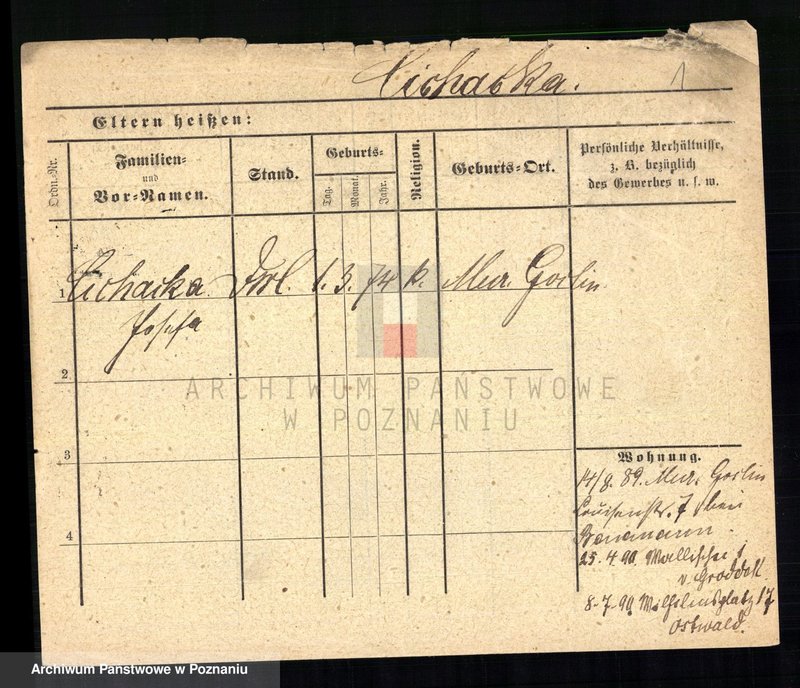 Cichacka. 1
Eltern heißen:
Ordn.-Nr.
Familien-
und
Vor-Namen.
Stand.
Geburts-
Tag.
Monat.
Jahr.
Religion.
Geburts-Ort.
Persönliche Verhältnisse,
z. B. bezüglich
des Gewerbes u. s. w.
1 Cichacka 1. 3. 74 k. Mur. Goslin
Josefa
2
3
4
Wohnung.
14/8. 89. Mur. Goslin
Louisenstr. 7 bei
25. 4 90. Wallischei
v. Groddek
8-7-90 Wilhelmsplatz 17
Ostwald.
ARCHIWUM PAŃSTWOWE
W POZNANIU
Archiwum Panstwowe w Poznaniu